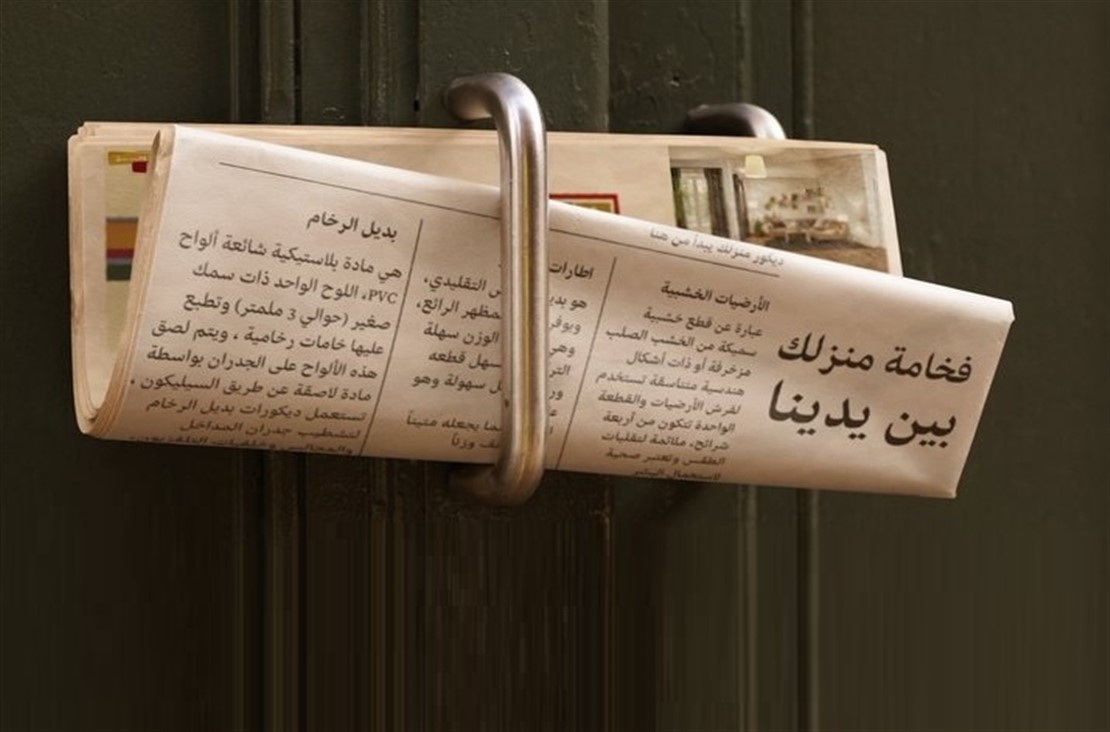 ديكور منزلك يبدأ من هنا
فخامة منزلك
بين يدينا
الأرضيات الخشبية
عبارة عن قطع خشبية
سميكة من الخشب الصلب
مزخرفة أو ذات أشكال
هندسية متناسقة تستخدم
لفرش الأرضيات والقطعة
الواحدة تتكون من أربعة
شرائح، ملائمة لتقلبات
الطقس وتعتبر صحية
لاستعمال البشر
اطارات
التقليدي،
المظهر الرائع،
الوزن سهلة
وهي
قطعه
سهولة وهو
يجعله متيناً
وزناً
بديل الرخام
هي مادة بلاستيكية شائعة ألواح
PVC، اللوح الواحد ذات سمك
صغير (حوالي 3 ملمتر) وتطبع
عليها خامات رخامية ، ويتم لصق
هذه الألواح على الجدران بواسطة
مادة لاصقة عن طريق السيليكون .
تستعمل ديكورات بديل الرخام
لتشطيب جدران المداخل